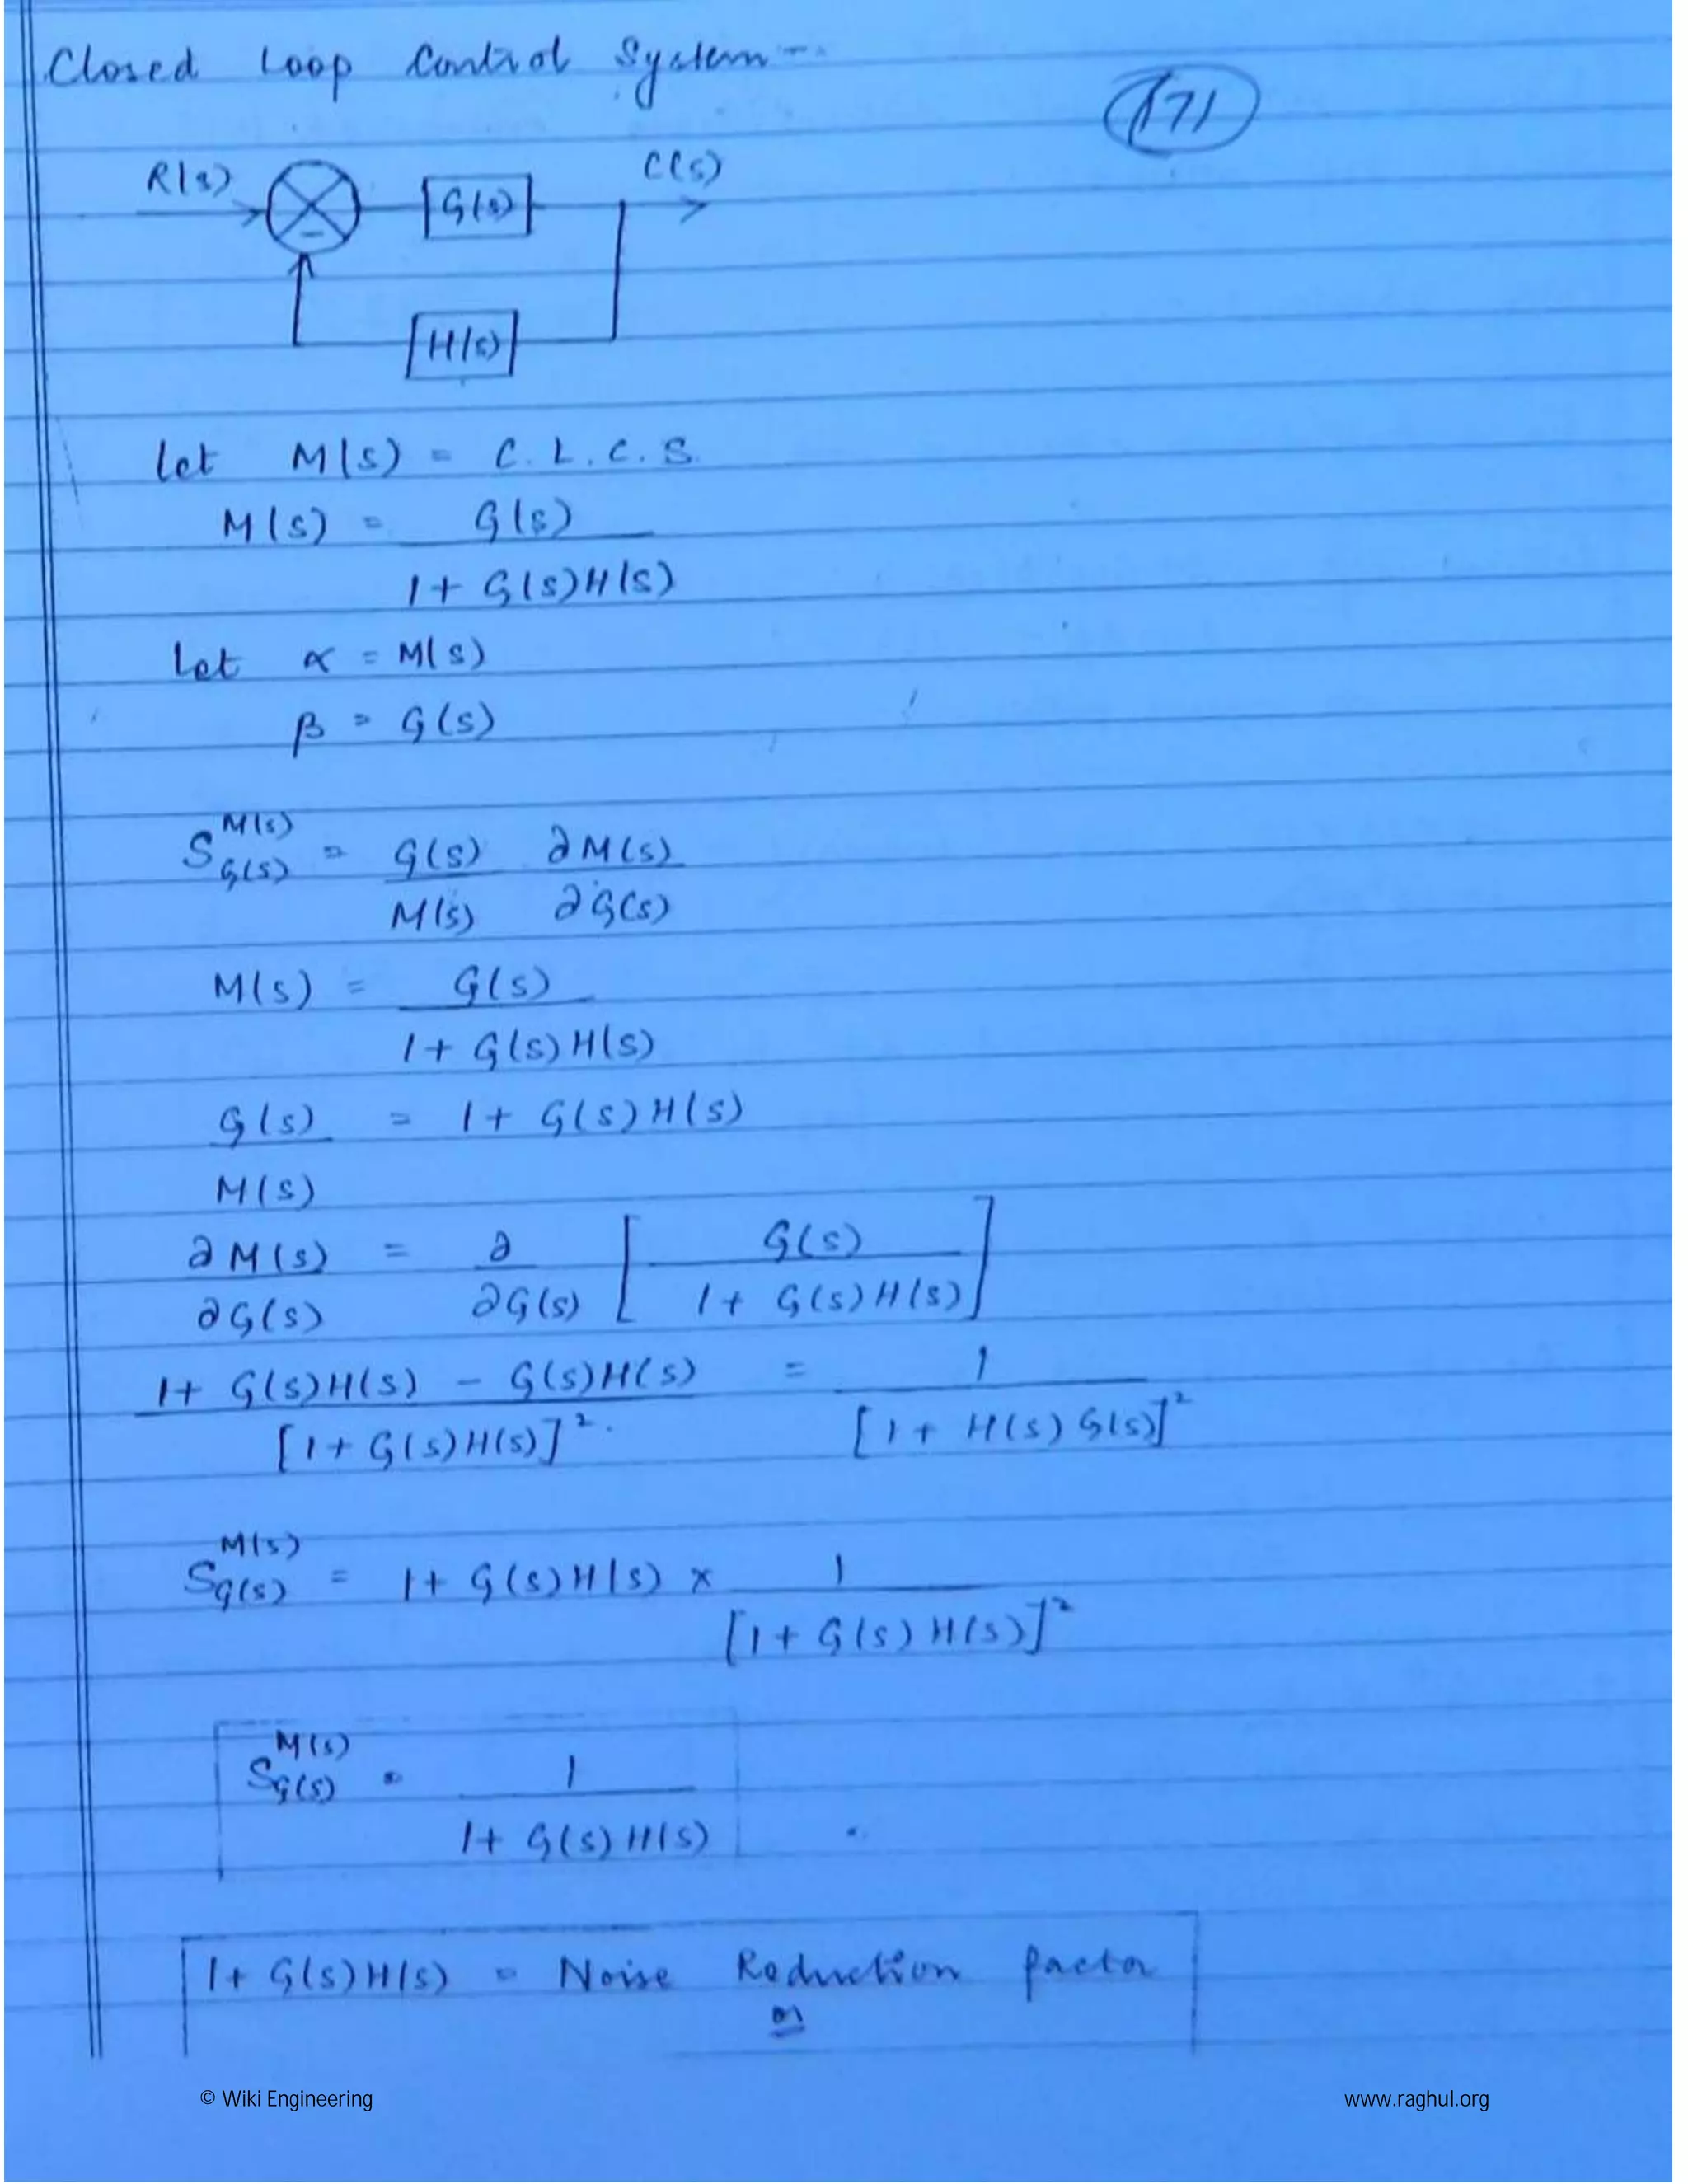 Closed Loop Control System -
171
R(s) G(s) C(s)
-
H(s)
Let M(s) = C.L.C.S.
M(s) = G(s)
1 + G(s)H(s)
Let α = M(s)
β = G(s)
S^M(s)_G(s) = G(s) ∂M(s)
M(s) ∂G(s)
M(s) = G(s)
1 + G(s)H(s)
G(s) = 1 + G(s)H(s)
M(s)
∂M(s) = ∂ [ G(s) ]
∂G(s) ∂G(s) 1 + G(s)H(s)
1 + G(s)H(s) - G(s)H(s) = 1
[1 + G(s)H(s)]² [1 + H(s)G(s)]²
S^M(s)_G(s) = 1 + G(s)H(s) × 1
[1 + G(s)H(s)]²
S^M(s)_G(s) = 1
1 + G(s)H(s)
1 + G(s)H(s) = Noise Reduction factor
or
© Wiki Engineering www.raghul.org